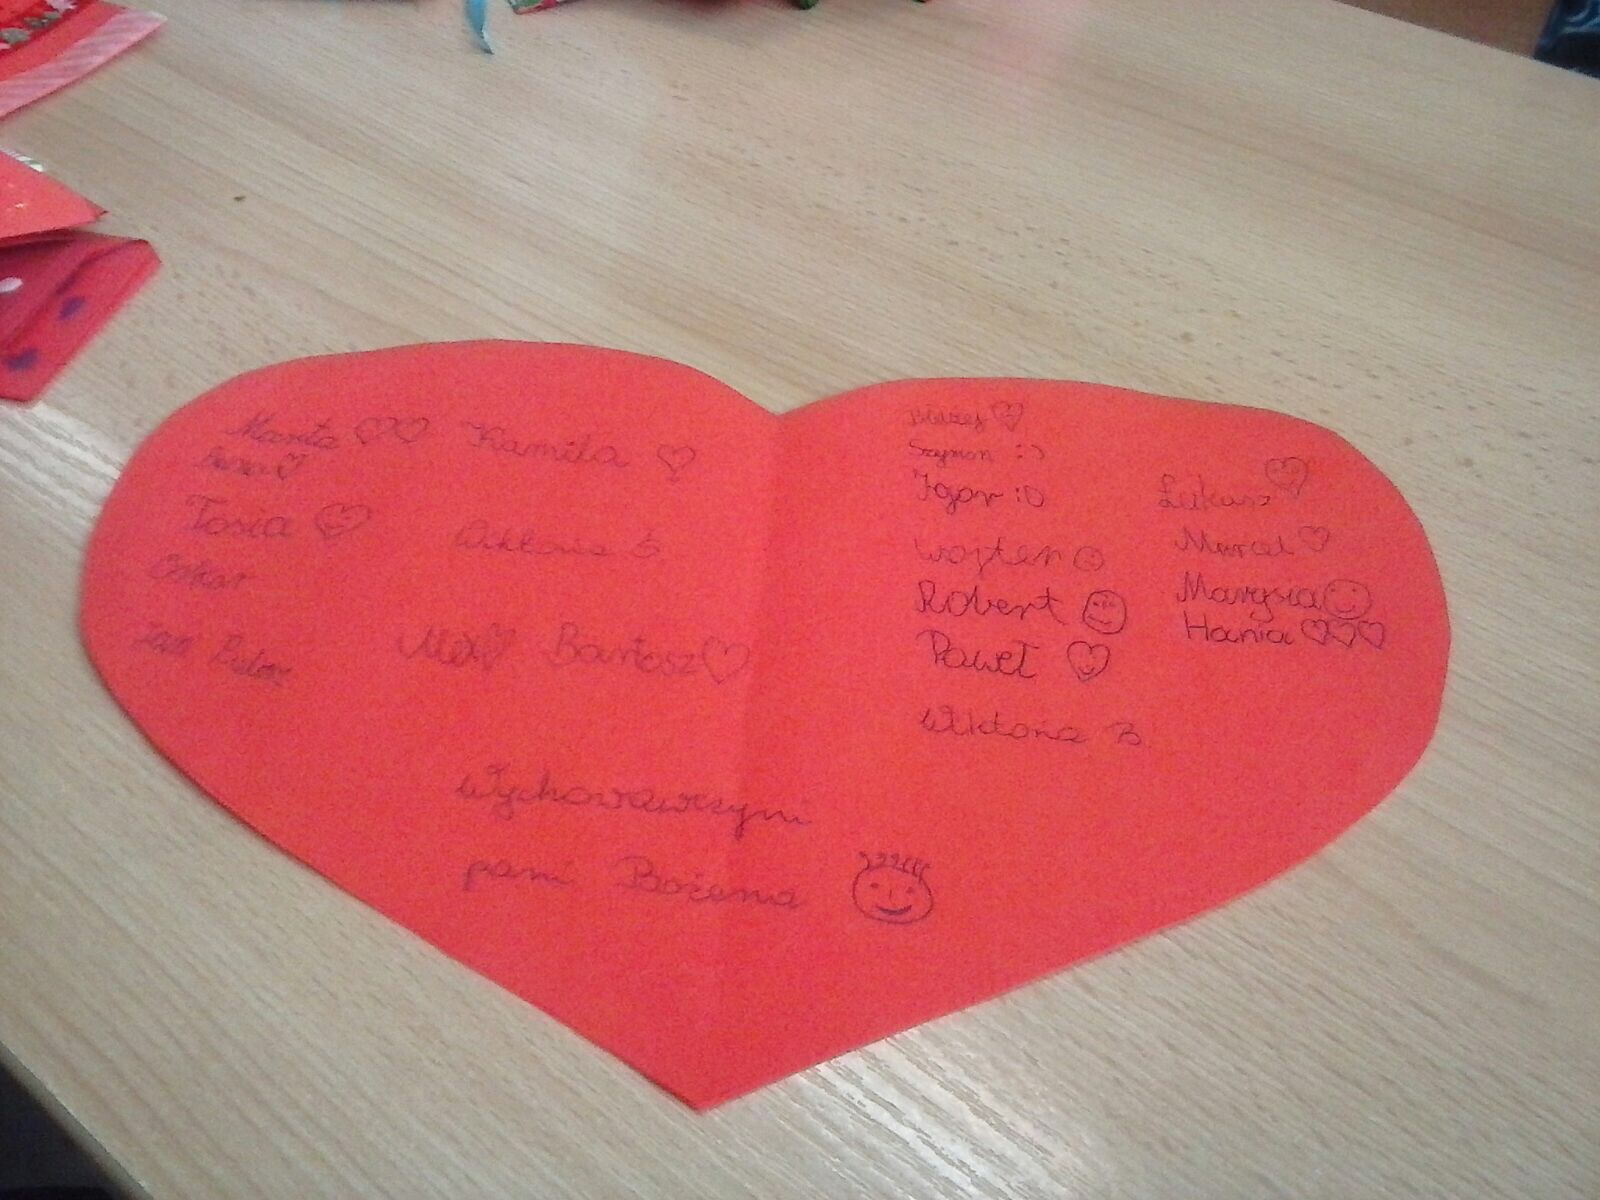 Marta Kamila
Tosia
Wiktoria S
Oskar
Bartosz
Błażej
Szymon :)
Igor :D
Łukasz
Wojtek
Marcel
Robert
Marysia
Paweł
Hania
Wiktoria B.
Wychowawczyni
pani Bożena